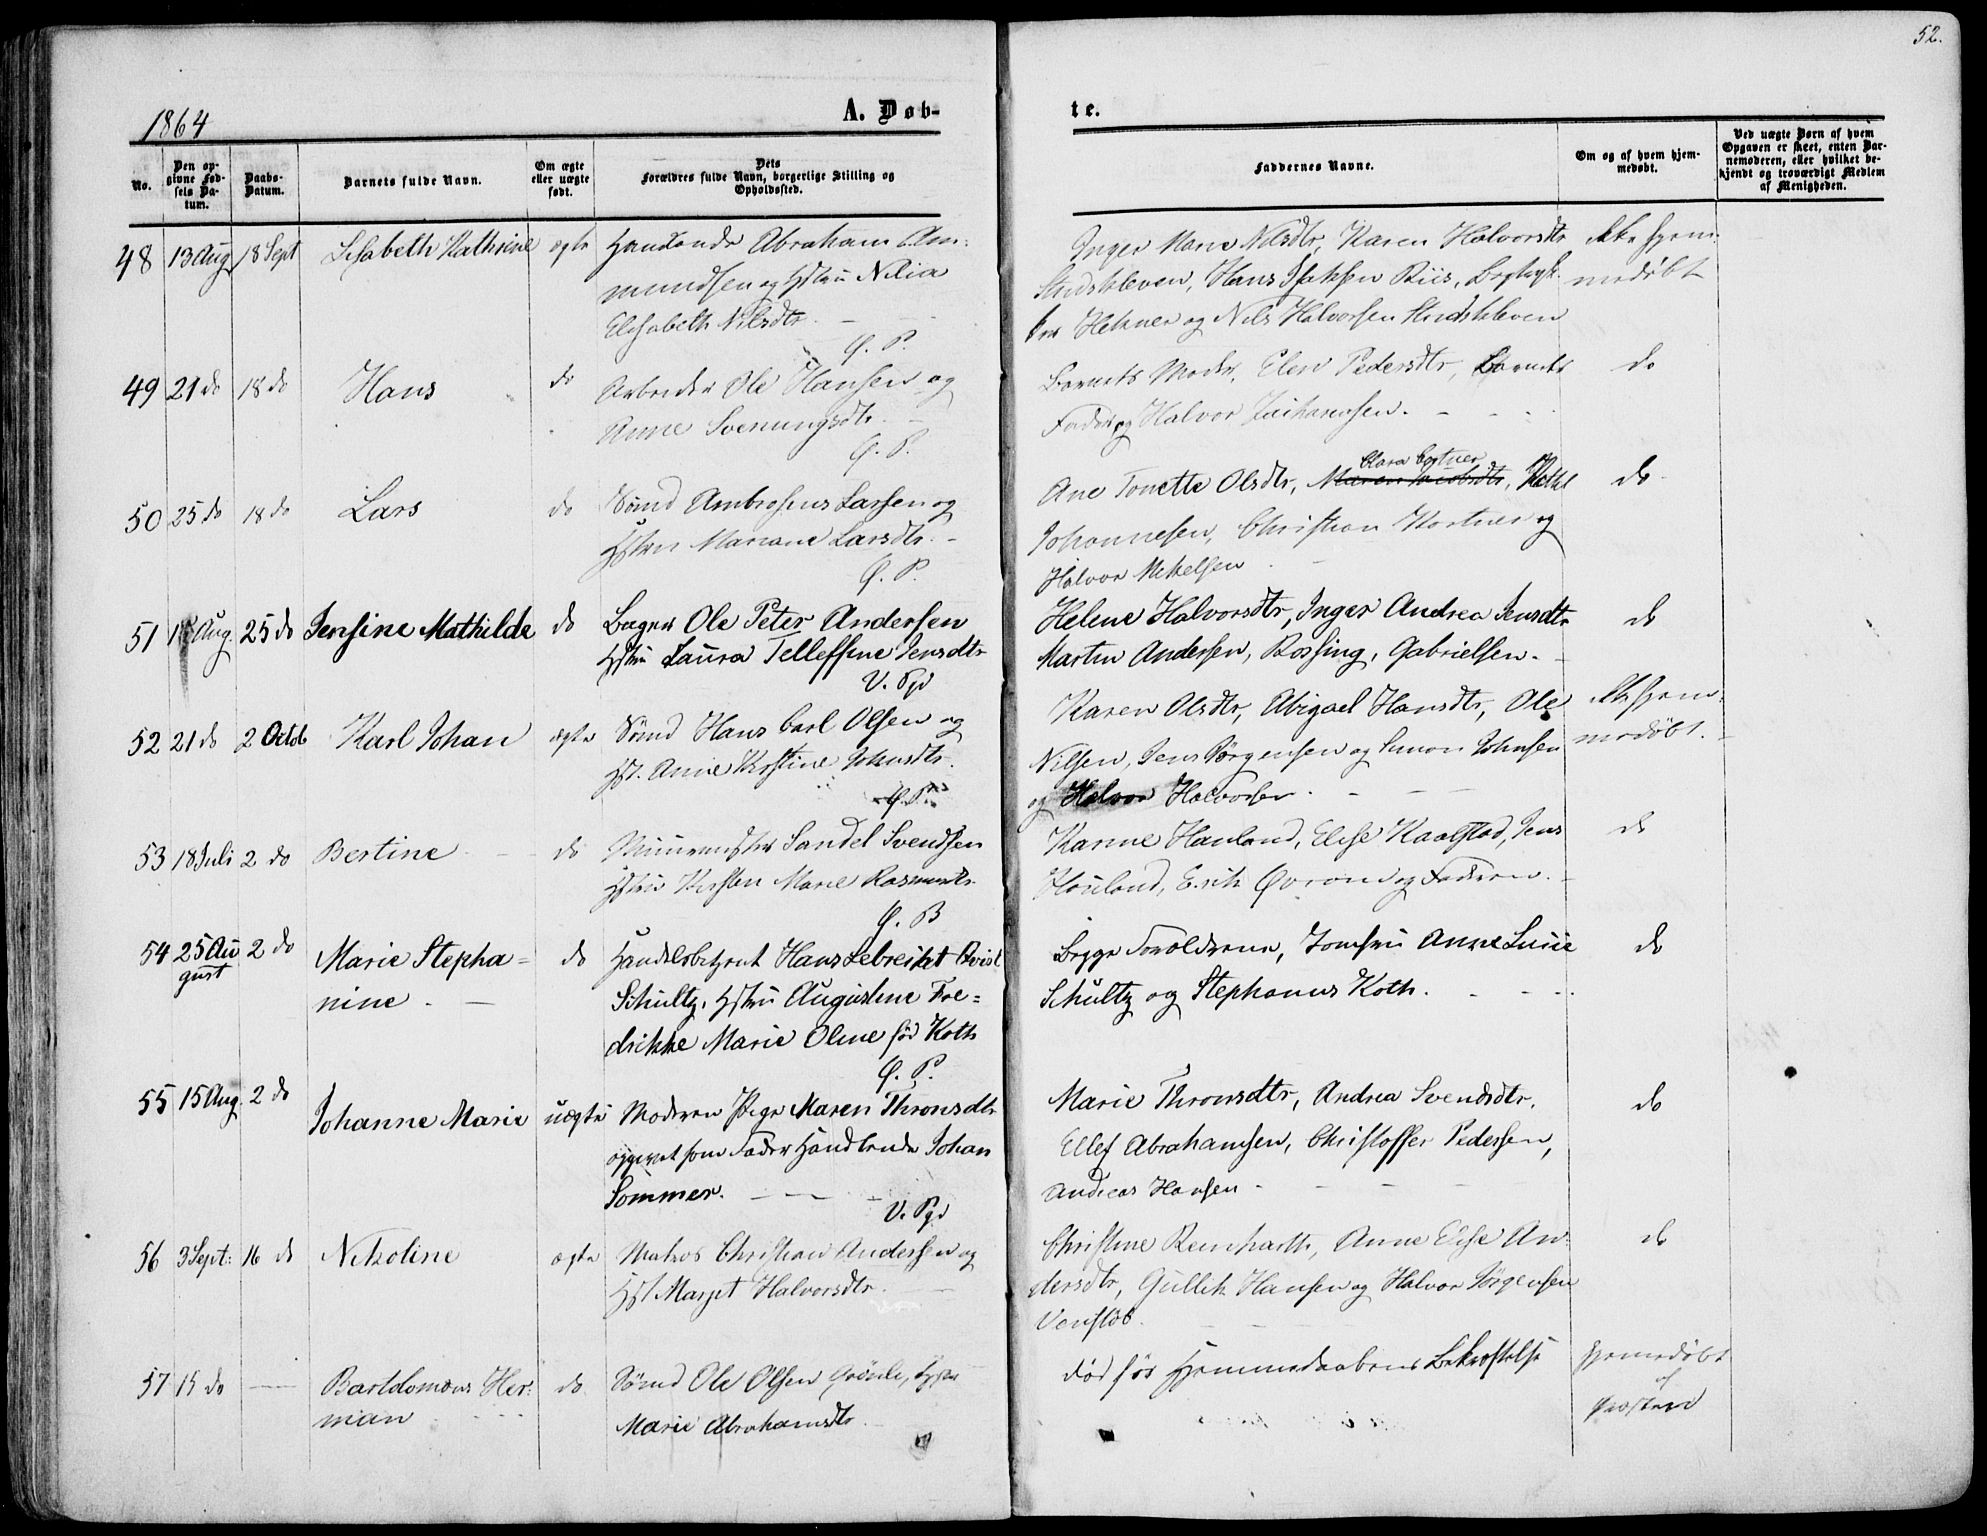 52.
1864
A. Døb-
te.
No.
Den op-
givne Fød-
sels Da-
tum.
Daabs-
Datum.
Barnets fulde Navn.
Om ægte
eller uægte
født.
Dets
Forældres fulde Navn, borgerlige Stilling og
Opholdssted.
Faddernes Navne.
Om og af hvem hjem-
medøbt.
Ved uægte Børn af hvem
Opgaven er skeet, enten Bar-
nemoderen, eller hvilket be-
kjendt og troværdigt Medlem
af Menigheden.
48 13 Aug 18 Sept Elisabeth Kathrine ægte Handlende Abraham Am-
mundsen og Hstru Nilia
Elisabeth Nilsdtr
Inger Marie Nilsdtr, Karen Halvorsdtr
Hans Isaksen Riis,
Hekner og Nils Halvorsen
ikke hjem-
medøbt
G. P.
49 21 do 18 do Hans do Arbeider Ole Hansen og
Anne Svenungsdtr.
Barnets Moder, Elen Pedersdtr, Barnets
Fader og Halvor Zachariasen.
do
G. P.
50 25 do 18 do Lars do Sømd Ambrosius Larsen og
Hstru Mariane Larsdtr.
Clara Cortner
Ane Tonette Olsdtr, Maren Jacobsdtr,
Johannesen, Christian Kortner og
Halvor Mekelsen
do
G. P.
51 Aug. 25 do Jensine Mathilde do Bager Ole Peter Andersen
Hstru Laura Telleffine Jensdtr
Helene Halvorsdtr, Inger Andrea Jensdtr
Martin Andersen, Rossing, Gabrielsen.
do
V. Pgd
52 21 do 2 Octob Karl Johan ægte Sømd Hans Carl Olsen og
Hst. Anne Kirstine Johnsdtr.
Karen Olsdtr, Abigael Hansdtr, Ole
Nilsen, Jens Jørgensen og Simon Johnsen
og Halvor Halvorsen.
ikke hjem-
medøbt.
G. P.
53 18 Juli 2 do Bertine do Muurmester Sandel Svendsen
Hstru Kirsten Marie Rasmusdtr.
Karine Hauland, Elise Kaalstad, Jens
Hauland, Erik og Faderen.
do
G. B
54 25 Au
gust
2 do Marie Stepha-
nine
do Handelsbetjent Hans Lebrecht Qvist
Schultz, Hstru Augustine Fre-
drikke Marie Oline fød Koth
Begge Forældrene, Jomfru Anne Lucie
Schultz og Stephanus Koth.
do
G. P.
55 15 Aug. 2 do Johanne Marie uægte Moderen Pige Maren Thronsdtr
opgivet som Fader Handlende Johan
Sommer.
Marie Thronsdtr, Andrea Svendsdtr.
Ellef Abrahamsen, Christoffer Pedersen,
Andreas Hansen
do
V. Pgd
56 3 Sept: 16 do Nikoline ægte Matros Christian Andersen og
Hst Margit Halvorsdtr.
Christine Reinhardt, Anne Elise An-
dersdtr, Gullik Hansen og Halvor Jørgensen
Venstøb.
do
57 15 do Bartolomæus Her-
man
do Sømd Ole Olsen Grönli,
Marie Abrahamsdtr
død før Hjemmedaabens Bekræftelse
hjemmedøbt
af
Præsten